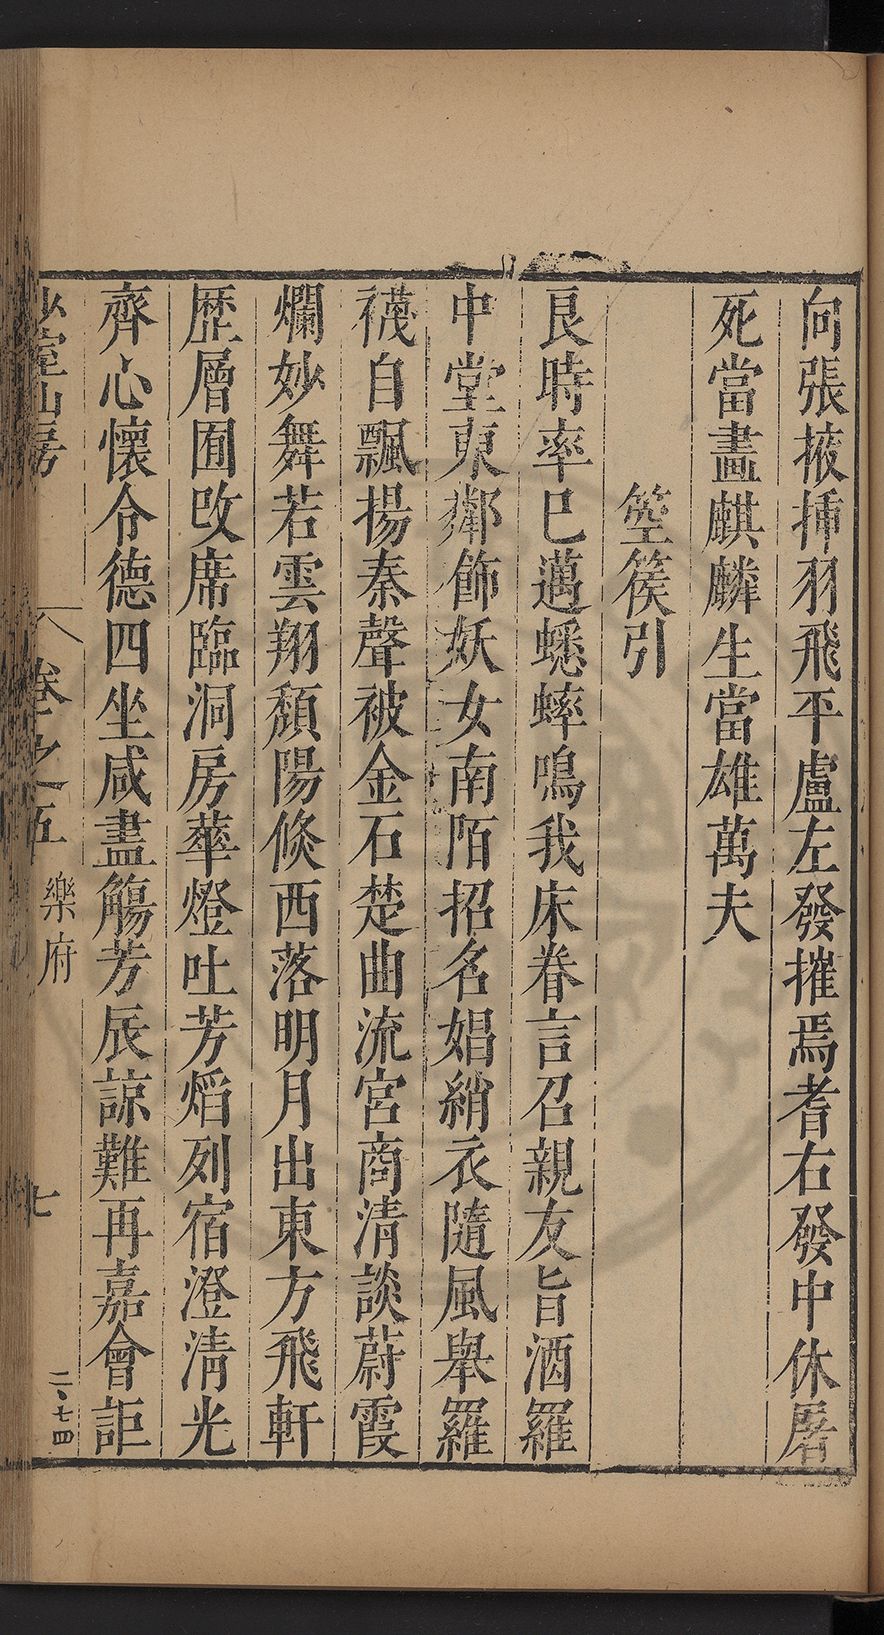 向張掖揷羽飛平盧左發摧焉耆右發中休屠
死當畫麒麟生當雄萬夫
箜篌引
良時率已邁蟋蟀鳴我床眷言召親友旨酒羅
中堂東鄰飾妖女南陌招名娼綃衣隨風舉羅
襪自飄揚秦聲被金石楚曲流宮商清談蔚霞
爛妙舞若雲翔頽陽倐西落明月出東方飛軒
歴層囿攺席臨洞房華燈吐芳熖列宿澄清光
齊心懷令德四坐咸盡觴芳辰諒難再嘉會詎
少室山房
卷之五 樂府
七
二、七四